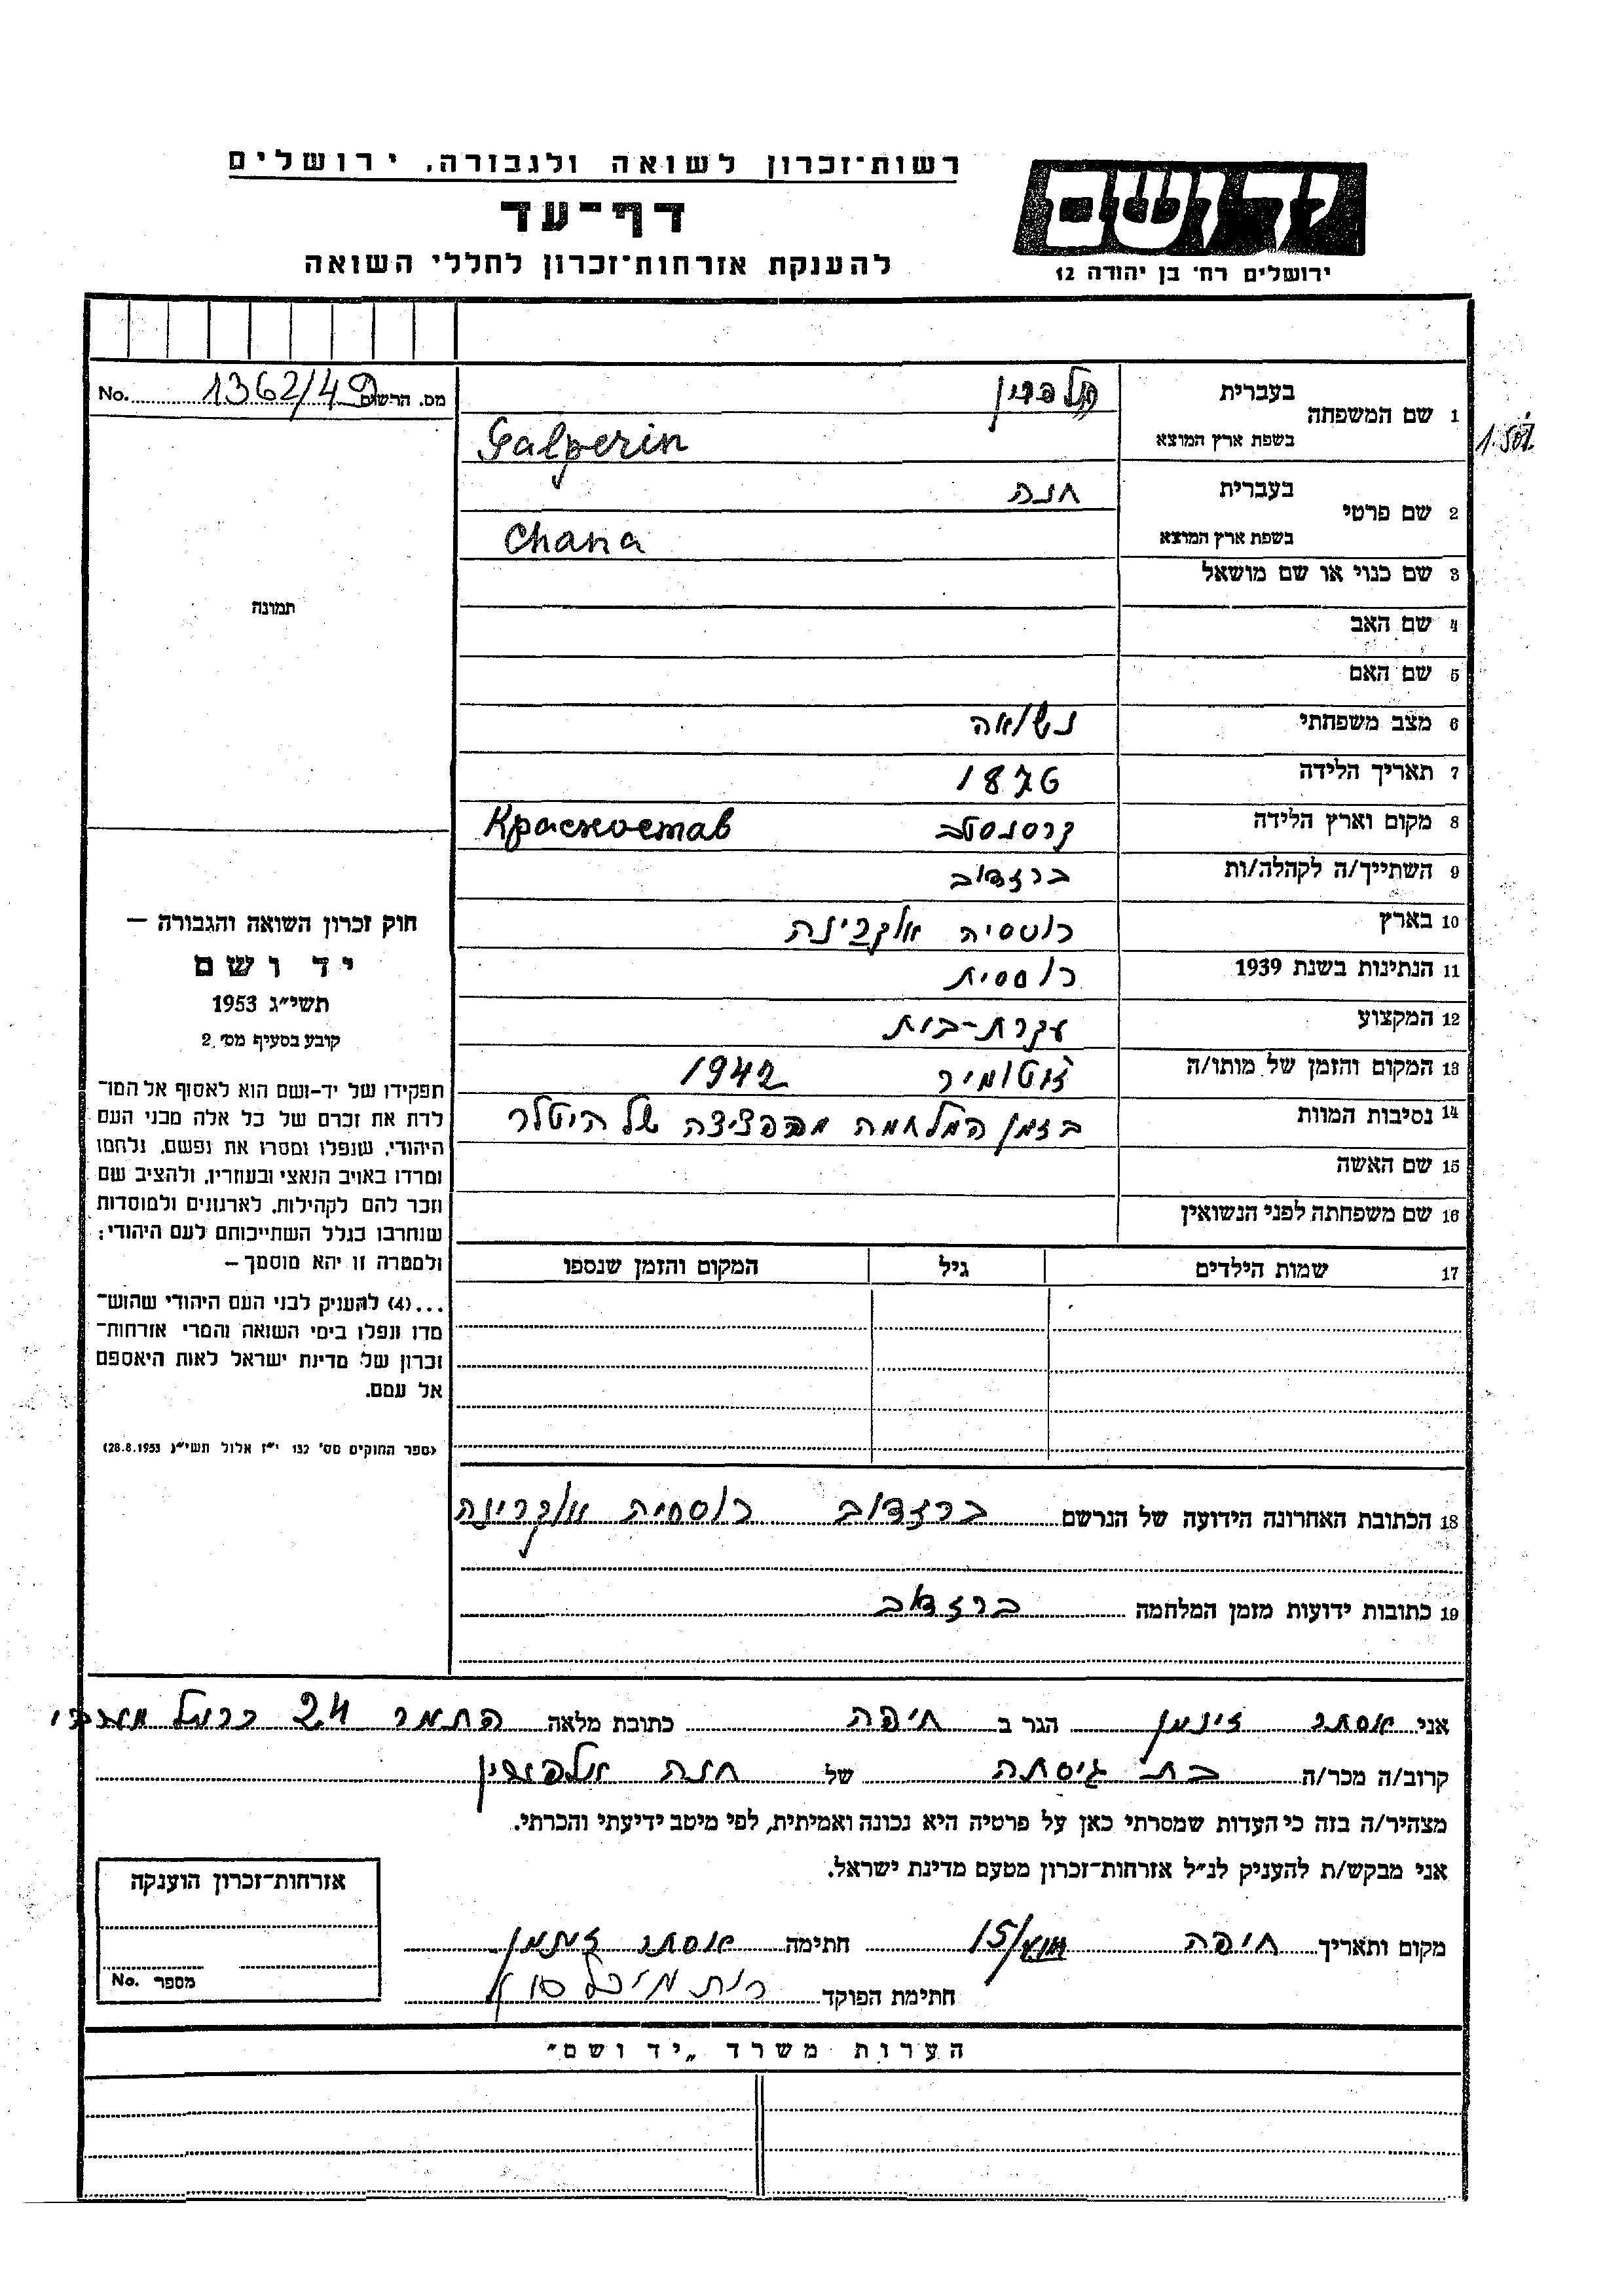 רשות־זכרון לשואה ולגבורה, ירושלים
דף־עד
להענקת אזרחות־זכרון לחללי השואה
יד ושם
ירושלים רח' בן יהודה 12
מס. הרשום 1362/49 No.
1 שם המשפחה
בעברית
בשפת ארץ המוצא Galperin
2 שם פרטי
בעברית חנה
בשפת ארץ המוצא Chana
3 שם כנוי או שם מושאל
4 שם האב
5 שם האם
6 מצב משפחתי נשואה
7 תאריך הלידה 1876
8 מקום וארץ הלידה קרסנוסטב Красностав
9 השתייך/ה לקהלה/ות ברזדוב
10 בארץ רוסיה אוקרינה
11 הנתינות בשנת 1939 רוסית
12 המקצוע עקרת-בית
13 המקום והזמן של מותו/ה ז'יטומיר 1942
14 נסיבות המוות בזמן המלחמה מהפצצה של היטלר
15 שם האשה
16 שם משפחתה לפני הנשואין
17 שמות הילדים גיל המקום והזמן שנספו
תמונה
חוק זכרון השואה והגבורה –
יד ושם
תשי״ג 1953
קובע בסעיף מס׳ 2
תפקידו של יד-ושם הוא לאסוף אל המו־
לדת את זכרם של כל אלה מבני העם
היהודי, שנפלו ומסרו את נפשם, נלחמו
ומרדו באויב הנאצי ובעוזריו, ולהציב שם
וזכר להם לקהילות, לארגונים ולמוסדות
שנחרבו בגלל השתייכותם לעם היהודי;
ולמטרה זו יהא מוסמך –
...(4) להעניק לבני העם היהודי שהוש־
מדו ונפלו בימי השואה והמרי אזרחות־
זכרון של מדינת ישראל לאות היאספם
אל עמם.
(ספר החוקים מס' 132 י״ז אלול תשי״ג 28.8.1953)
18 הכתובת האחרונה הידועה של הנרשם ברזדוב רוסיה אוקרינה
19 כתובות ידועות מזמן המלחמה ברזדוב
אני אסתר זיגמן הגר ב חיפה כתובת מלאה התמר 24 כרמל מערבי
קרוב/ה מכר/ה בת גיסתה של חנה גלפרין
מצהיר/ה בזה כי העדות שמסרתי כאן על פרטיה היא נכונה ואמיתית, לפי מיטב ידיעתי והכרתי.
אני מבקש/ת להעניק לנ״ל אזרחות־זכרון מטעם מדינת ישראל.
מקום ותאריך חיפה חתימה אסתר זיגמן
חתימת הפוקד
אזרחות־זכרון הוענקה
מספר No.
הערות משרד „יד ושם״